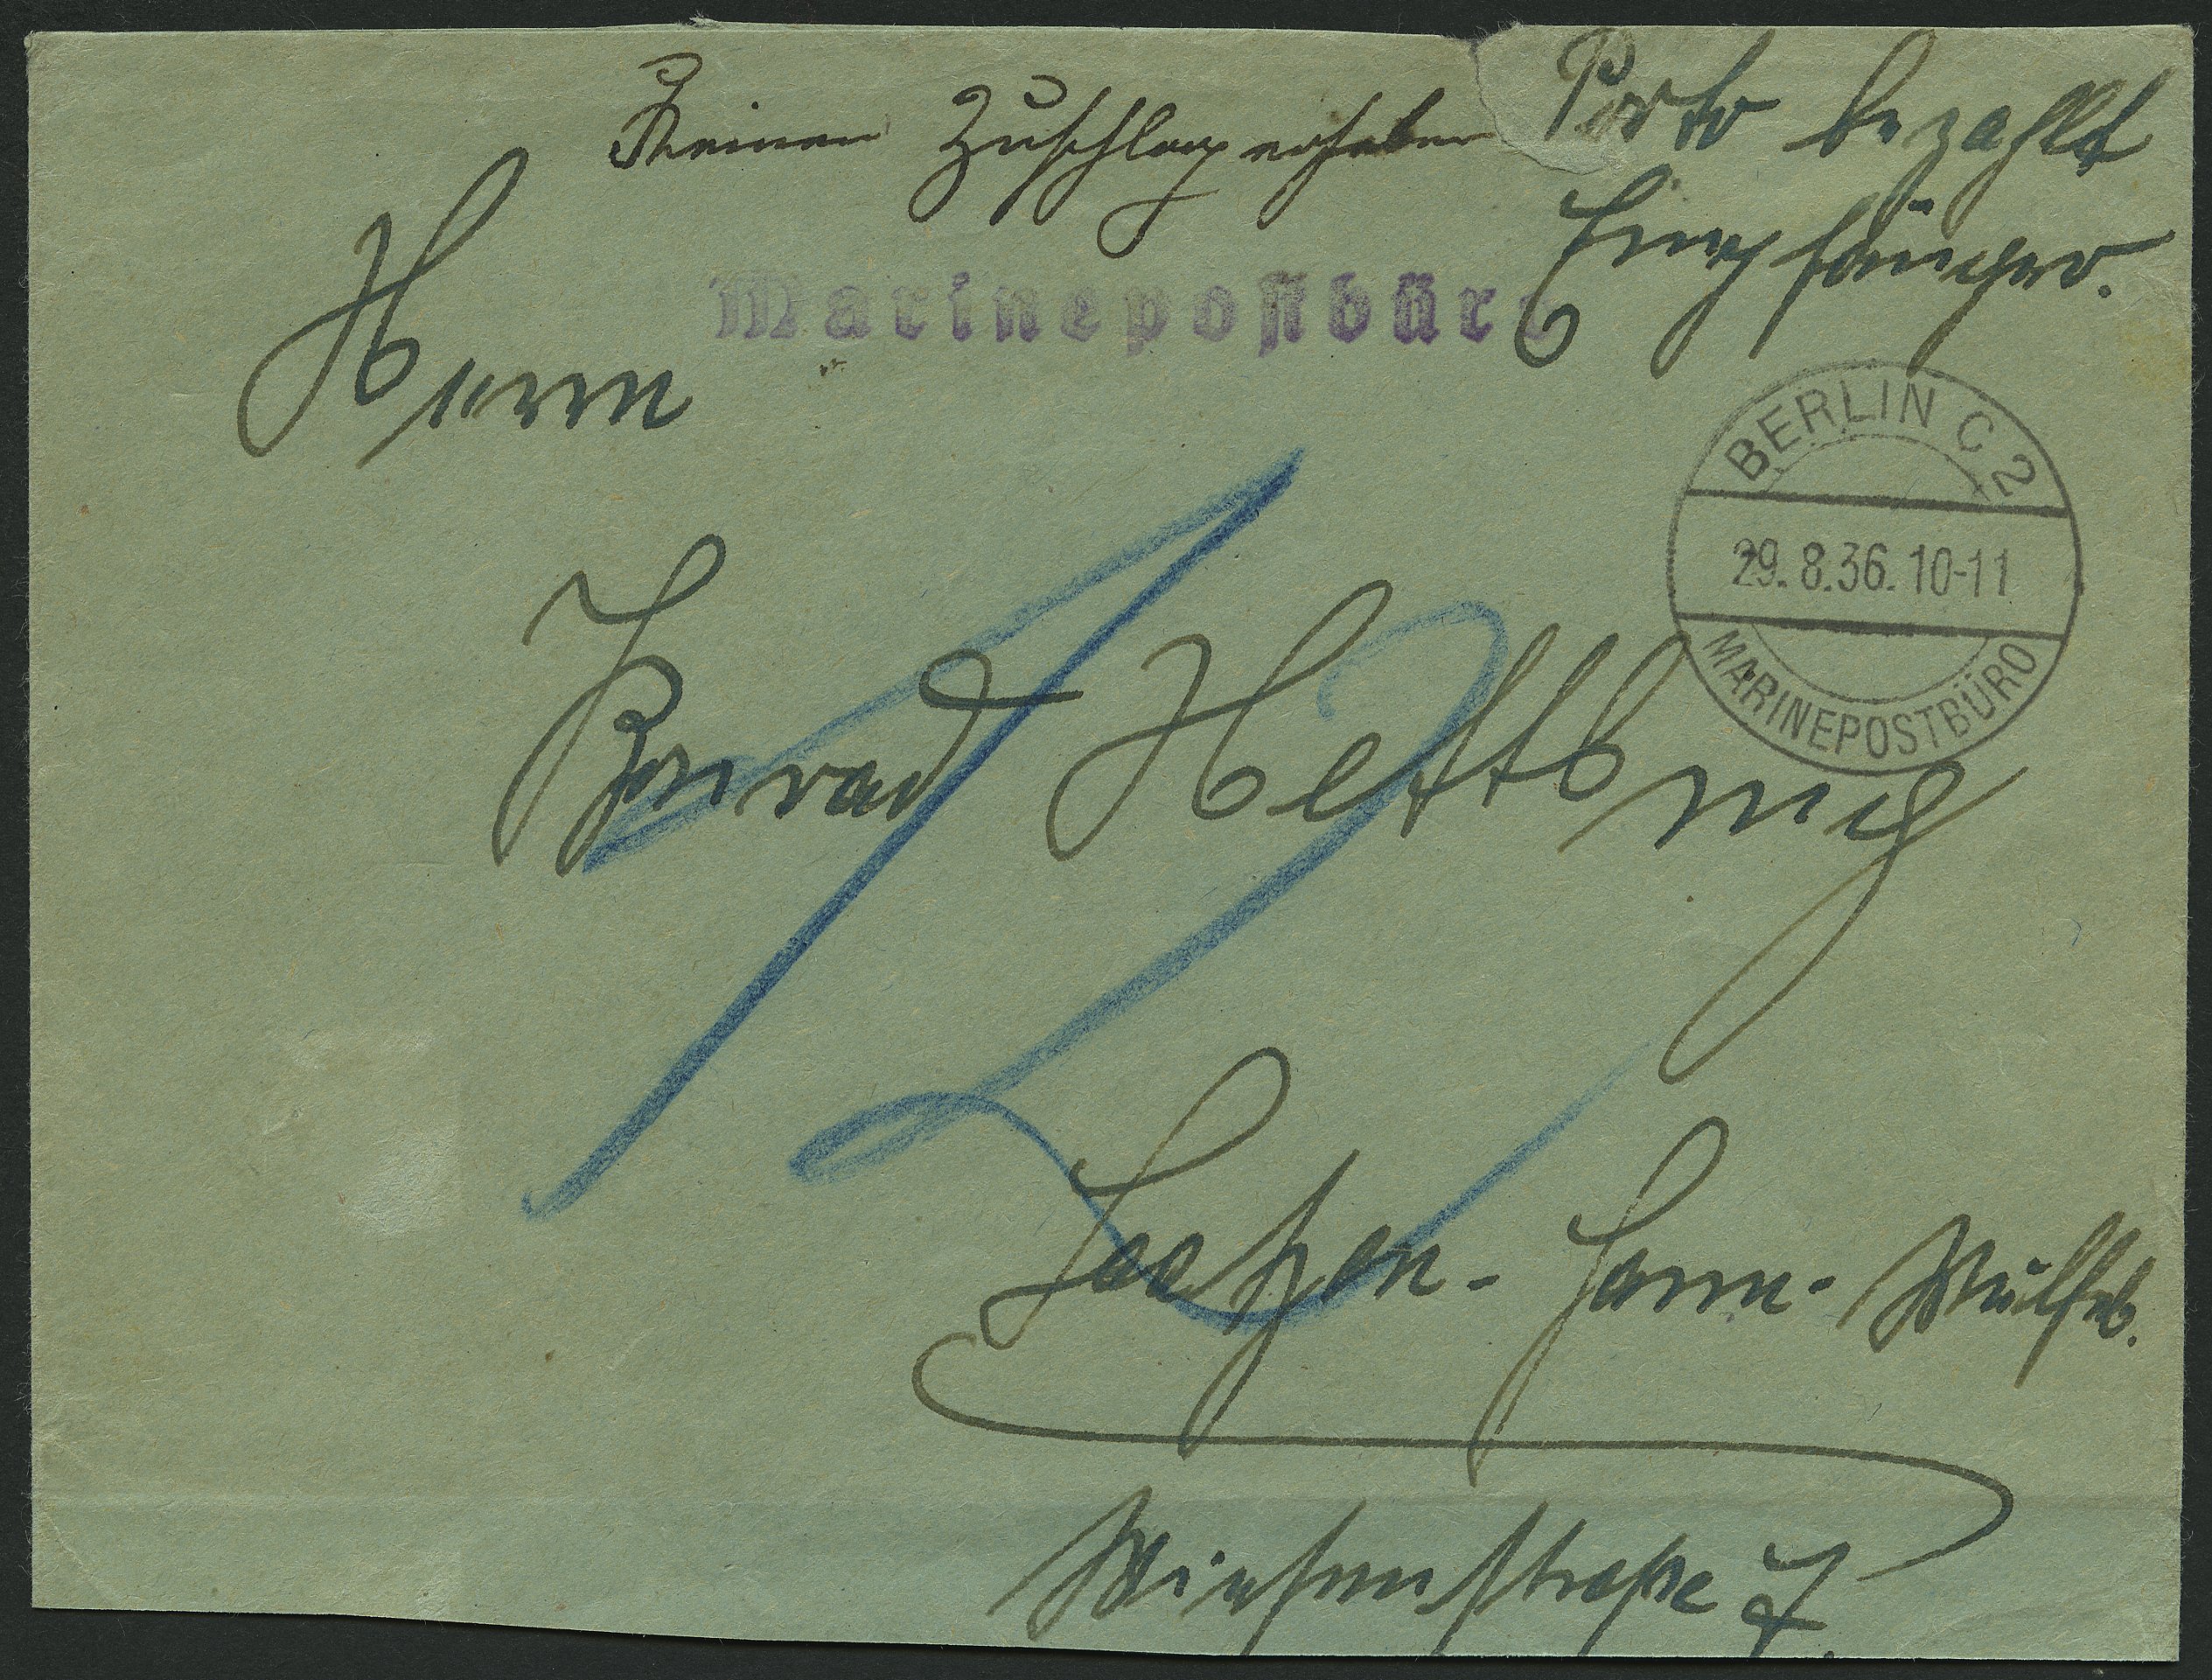 Keinen Zuschlag erheben
Porto bezahlt
Empfänger.
Marinepostbüro
Herrn
BERLIN C 2
29. 8.36. 10-11
MARINEPOSTBÜRO
Konrad
12
Laatzen - Hann - Wülfeb.
Wiesenstraße 7.